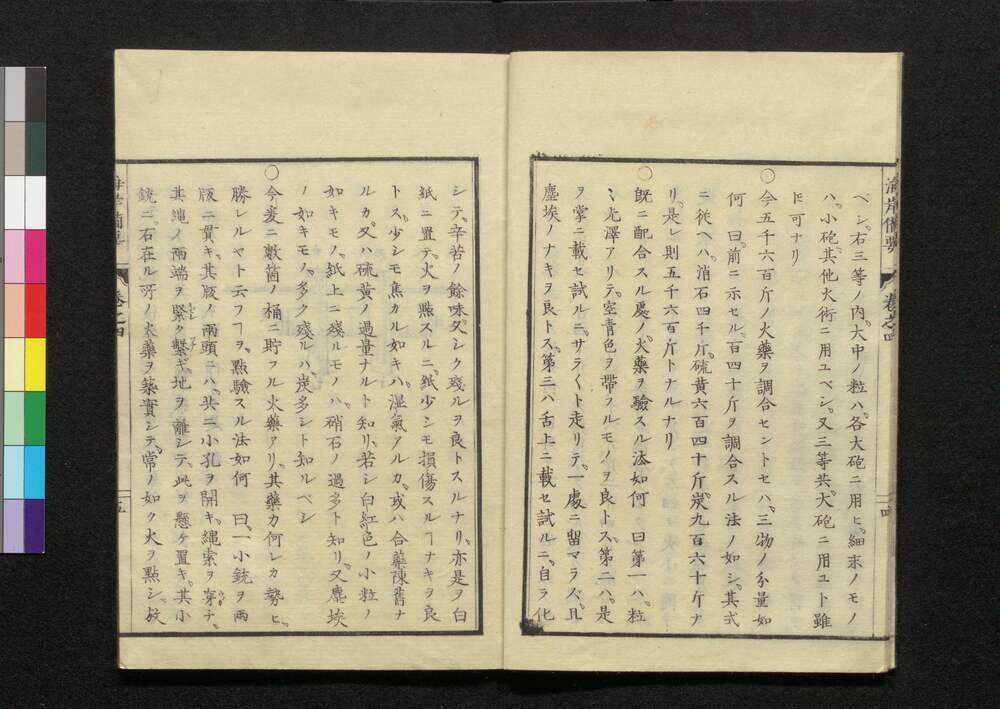 海岸備要 卷之四
ベシ。右三等ノ内。大中ノ粒ハ。各大砲ニ用ヒ。細末ノモノ
ハ。小砲其他火術ニ用ユベシ。又三等共。大砲ニ用ユト雖
𪜈可ナリ
○今五千六百斤ノ火藥ヲ調合セントセハ。三物ノ分量如
何 曰。前ニ示セル。百四十斤ヲ調合スル法ノ如シ。其式
ニ從ヘハ。消石四千斤。硫黄六百四十斤。炭九百六十斤ナ
リ。是レ則五千六百斤トナルナリ
○既ニ配合スル處ノ。火藥ヲ驗スル法如何 曰第一ハ。粒
々光澤アリテ。空青色ヲ帶フルモノヲ良トス。第二ハ。是
ヲ掌ニ載セ試ルニ。サラ〱ト走リテ。一處ニ留マラス。且
塵埃ノナキヲ良トス。第三ハ舌上ニ載セ試ルニ。自ラ化
シテ。辛苦ノ餘味。久シク殘ルヲ良トスルナリ。亦是ヲ白
紙ニ置テ。火ヲ點スルニ。紙少シモ損傷スルヿナキヲ良
トス。少シモ焦カル如キハ。湿氣アルカ。或ハ合藥陳舊ナ
ルカ。又ハ硫黄ノ過量ナルト知リ。若シ白紅色ノ小粒ノ
如キモノ。紙上ニ殘ルモノハ。硝石ノ過多ト知リ。又塵埃
ノ如キモノ。多ク殘ルハ。炭多シト知ルベシ
○今爰ニ數箇ノ桶ニ貯フル火藥アリ。其藥力何レカ勢ヒ
勝レルヤト云フヿヲ。點驗スル法如何 曰。一小銃ヲ兩
版ニ貫キ。其版ノ兩頭ニハ。共ニ小孔ヲ開キ。繩索ヲ穿チ。
其繩ノ兩端ヲ緊ク繫ギ。地ヲ離シテ。此ヲ懸ケ置キ。其小
銃ニ。右在ル所ノ火藥ヲ築實シテ。常ノ如ク火ヲ點シ。放